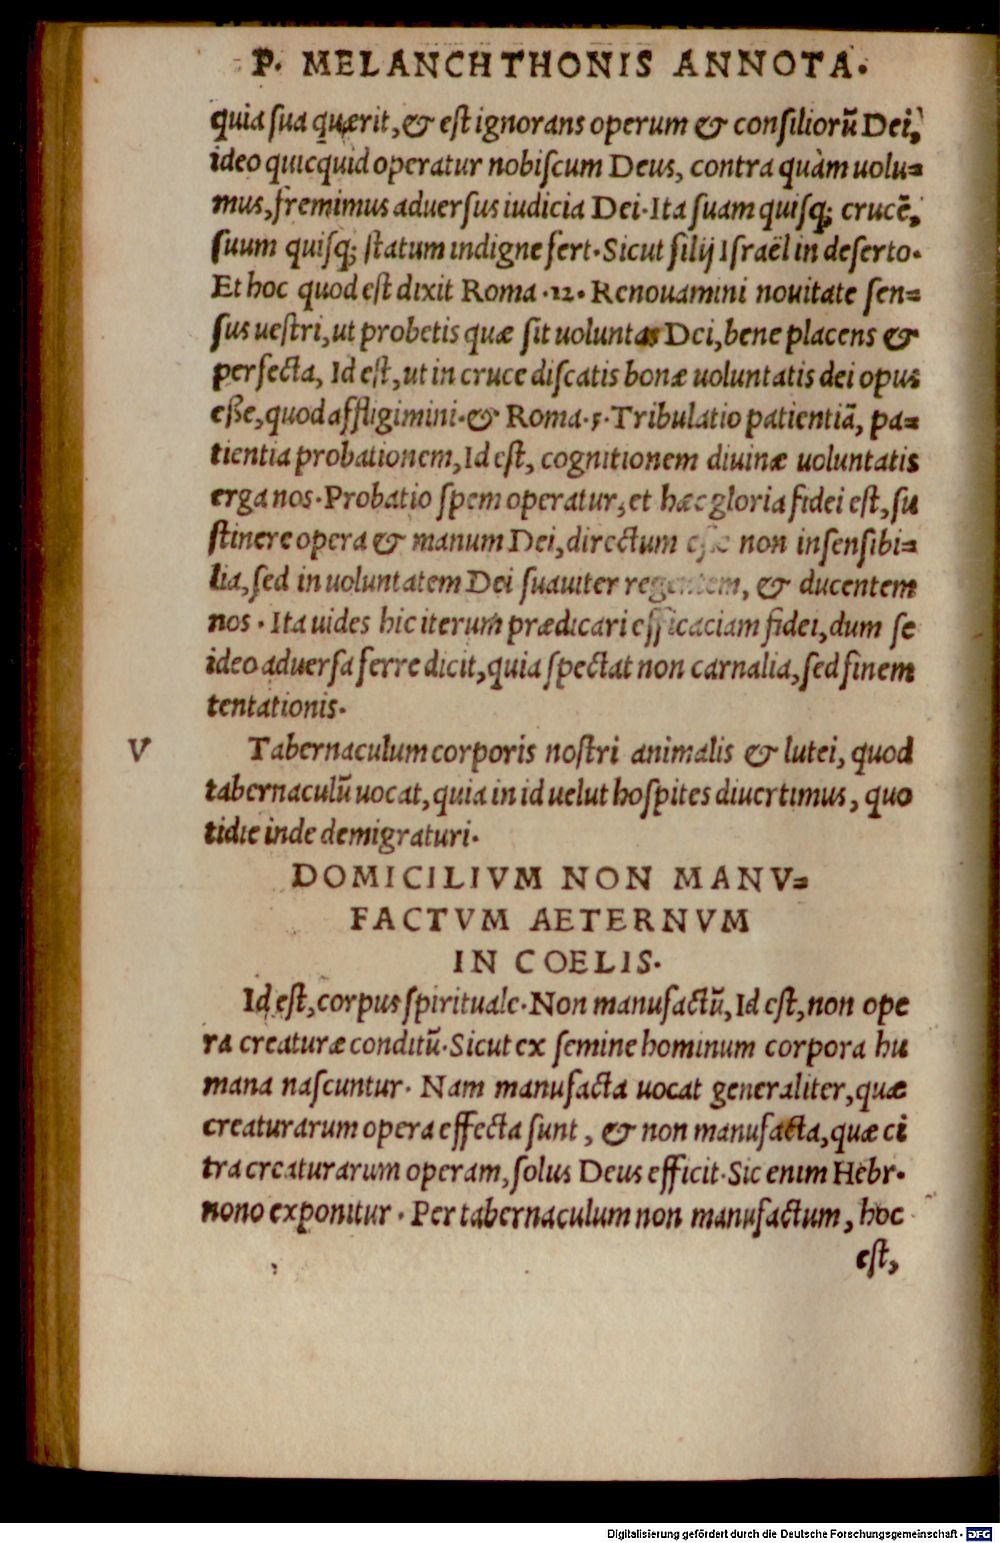 P. MELANCHTHONIS ANNOTA.
quia sua quærit, & est ignorans operum & consiliorū Dei,
ideo quicquid operatur nobiscum Deus, contra quàm uolu=
mus, fremimus aduersus iudicia Dei. Ita suam quisq; crucē,
suum quisq; statum indigne fert. Sicut filij Israël in deserto.
Et hoc quod est dixit Roma .12. Renouamini nouitate sen=
sus uestri, ut probetis quæ sit uoluntas Dei, bene placens &
perfecta, Id est, ut in cruce discatis bonæ uoluntatis dei opus
eße, quod affligimini. & Roma. 5. Tribulatio patientiā, pa=
tientia probationem, Id est, cognitionem diuinæ uoluntatis
erga nos. Probatio spem operatur, et hæc gloria fidei est, su
stinere opera & manum Dei, directum esse non insensibi=
lia, sed in uoluntatem Dei suauiter regentem, & ducentem
nos. Ita uides hic iterum prædicari efficaciam fidei, dum se
ideo aduersa ferre dicit, quia spectat non carnalia, sed finem
tentationis.
V Tabernaculum corporis nostri animalis & lutei, quod
tabernaculū uocat, quia in id uelut hospites diuertimus, quo
tidie inde demigraturi.
DOMICILIVM NON MANV=
FACTVM AETERNVM
IN COELIS.
Id est, corpus spirituale. Non manufactū, Id est, non ope
ra creaturæ conditū. Sicut ex semine hominum corpora hu
mana nascuntur. Nam manufacta uocat generaliter, quæ
creaturarum opera effecta sunt, & non manufacta, quæ ci
tra creaturarum operam, solus Deus efficit. Sic enim Hebr.
nono exponitur. Per tabernaculum non manufactum, hoc
est,
Digitalisierung gefördert durch die Deutsche Forschungsgemeinschaft - DFG